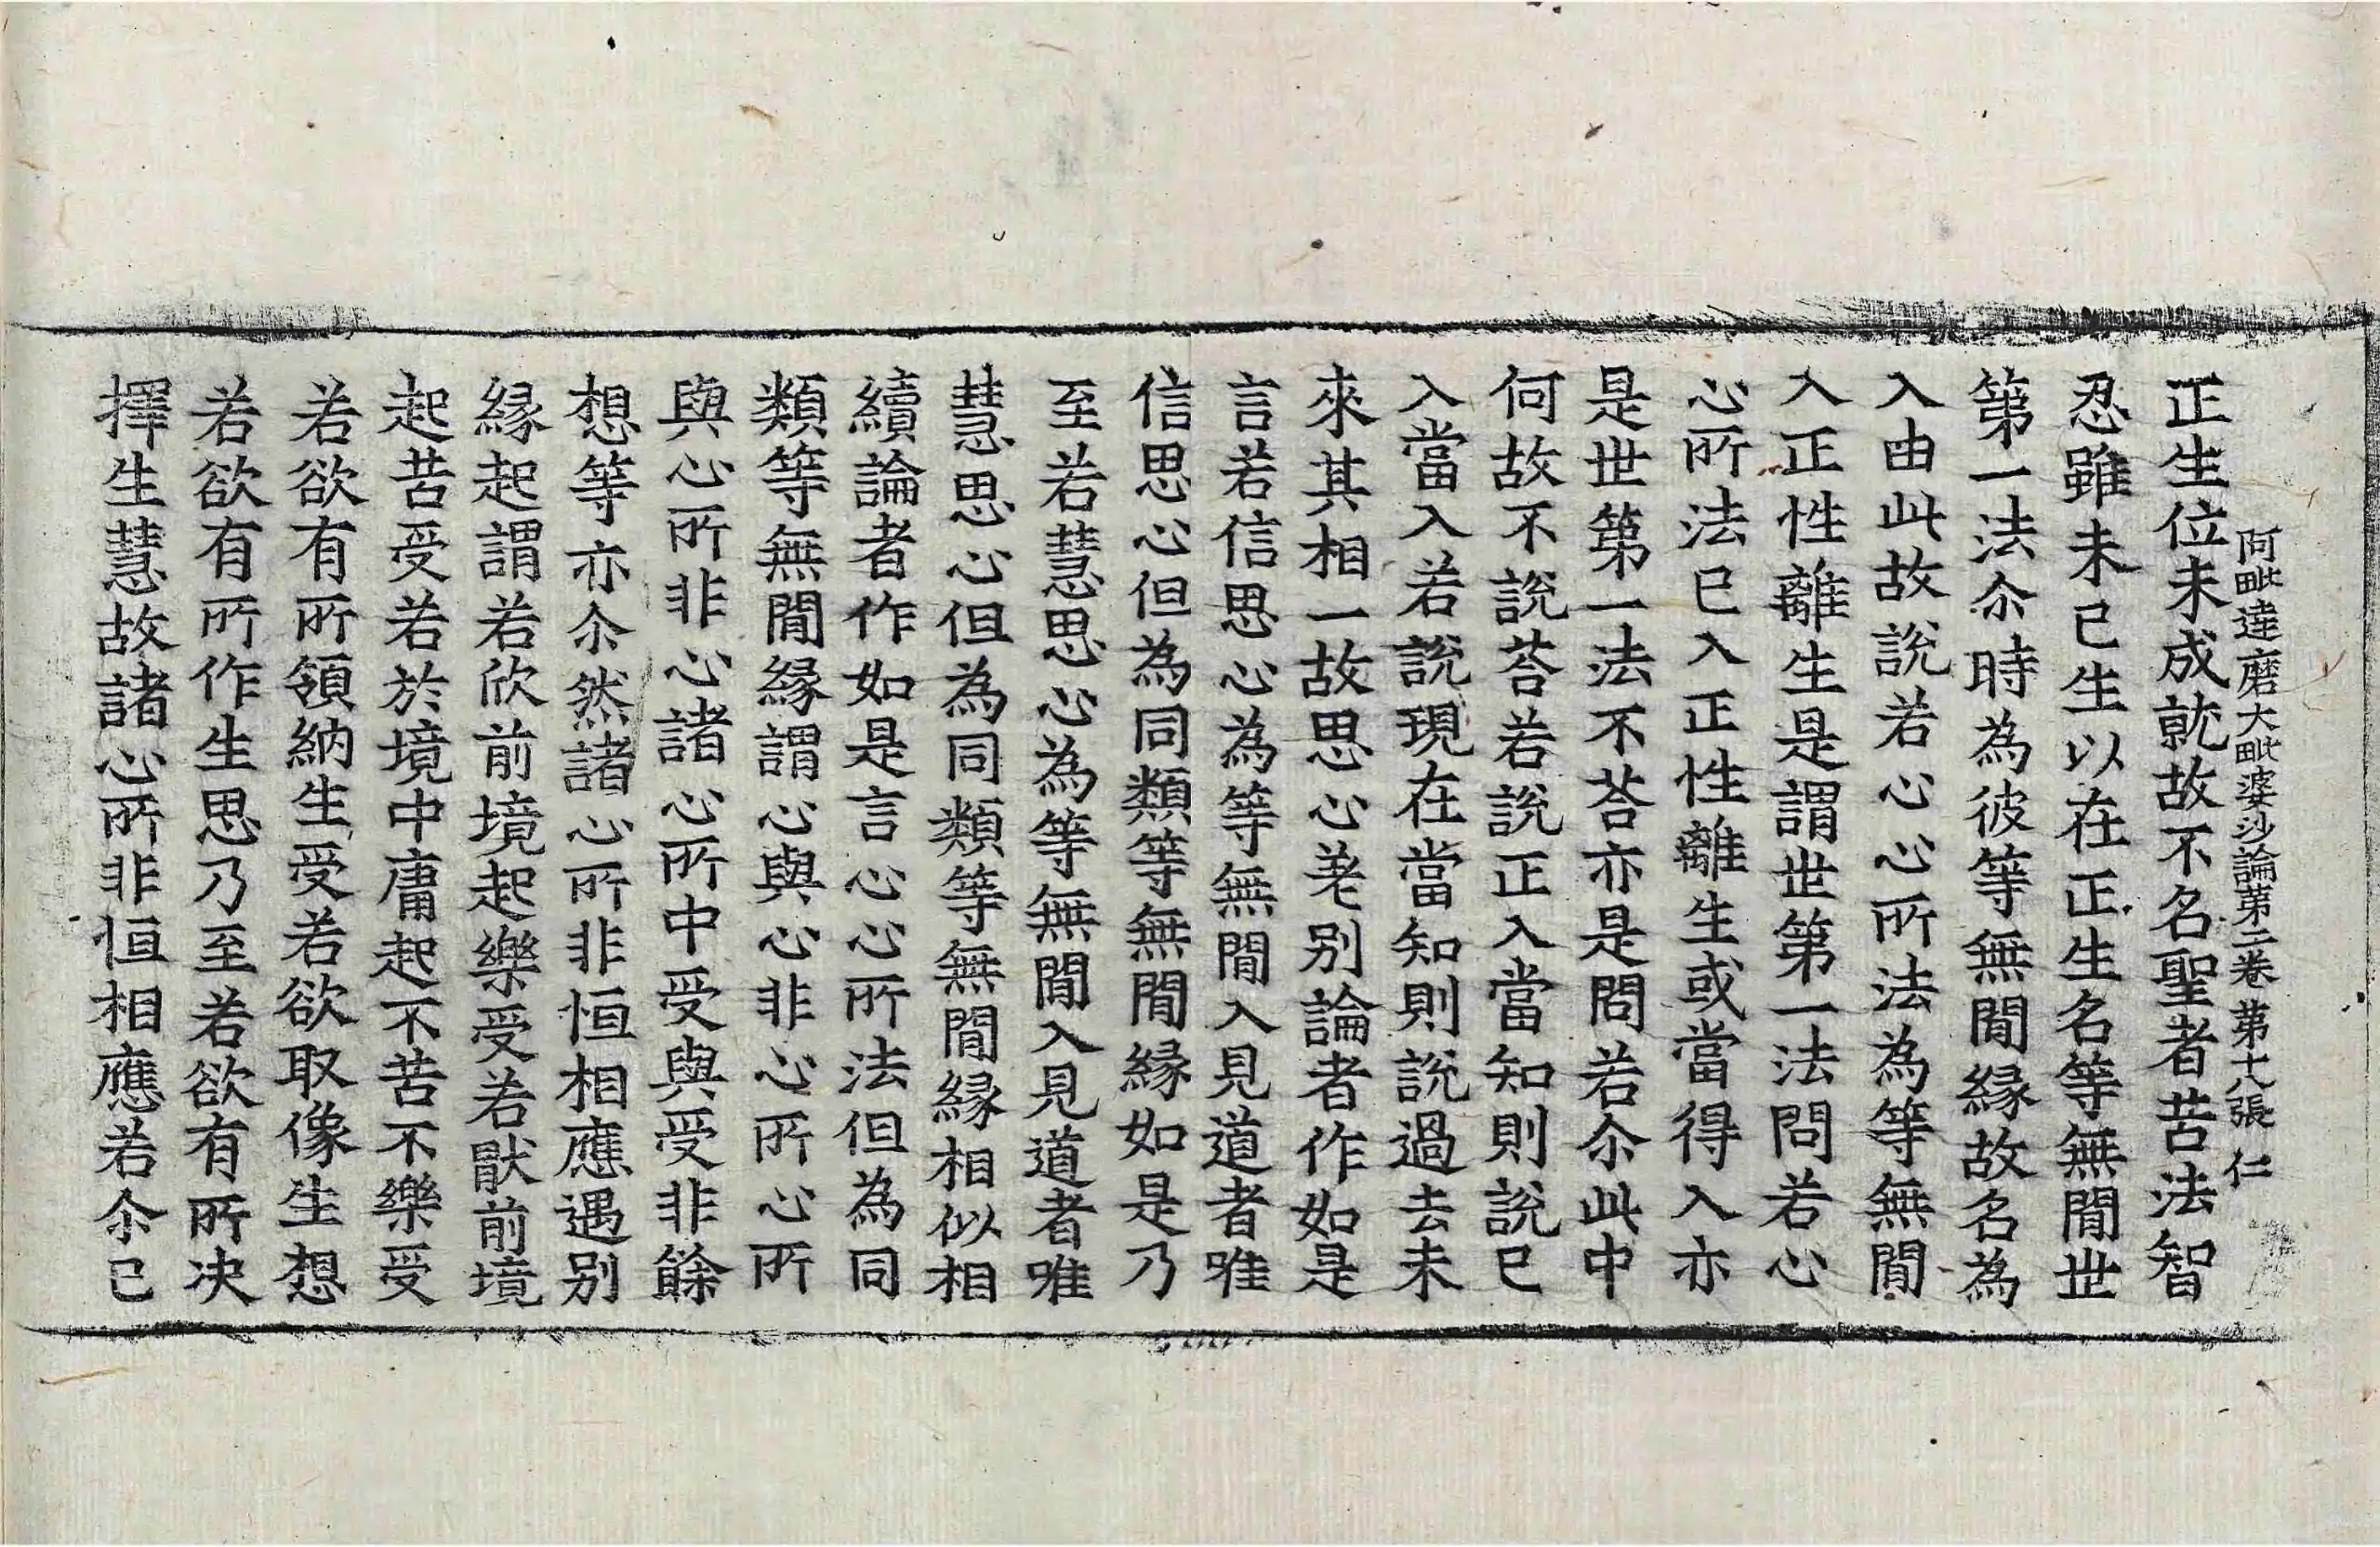 阿毗達磨大毗婆沙論第二卷 第十八張 仁
正生位未成就故不名聖者苦法智
忍雖未已生以在正生名等無間世
第一法尒時為彼等無間緣故名為
入由此故說若心心所法為等無間
入正性離生是謂世第一法問若心
心所法已入正性離生或當得入亦
是世第一法不荅亦是問若尒此中
何故不說荅若說正入當知則說已
入當入若說現在當知則說過去未
來其相一故思心差別論者作如是
言若信思心為等無間入見道者唯
信思心但為同類等無間緣如是乃
至若慧思心為等無間入見道者唯
慧思心但為同類等無間緣相似相
續論者作如是言心心所法但為同
類等無間緣謂心與心非心所心所
與心所非心諸心所中受與受非餘
想等亦尒然諸心所非恒相應遇別
緣起謂若欣前境起樂受若猒前境
起苦受若於境中庸起不苦不樂受
若欲有所領納生受若欲取像生想
若欲有所作生思乃至若欲有所决
擇生慧故諸心所非恒相應若尒已